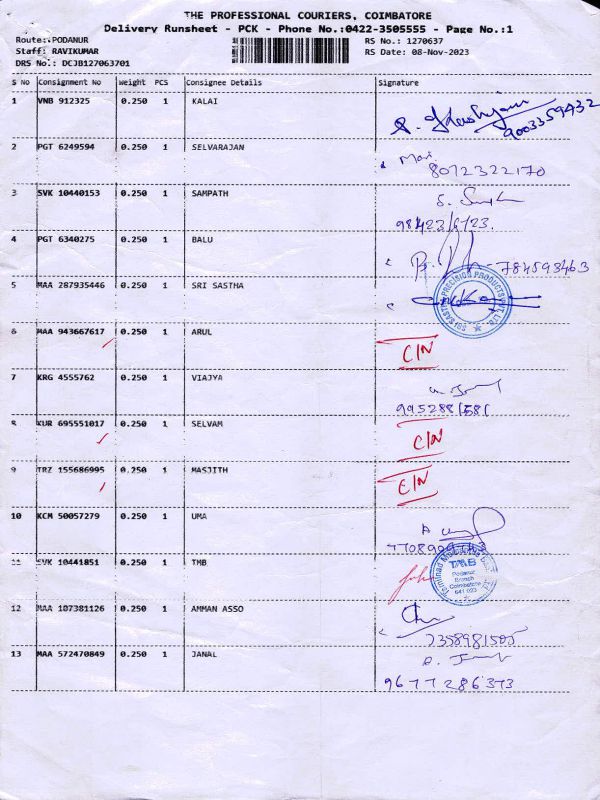 THE PROFESSIONAL COURIERS, COIMBATORE
Delivery Runsheet - PCK - Phone No.:0422-3505555 - Page No.:1
Route: PODANUR RS No.: 1270637
Staff: RAVIKUMAR RS Date: 08-Nov-2023
DRS No.: DCJB127063701
S No Consignment No Weight PCS Consignee Details Signature
1 VNB 912325 0.250 1 KALAI
9003359432
2 PGT 6249594 0.250 1 SELVARAJAN
8072322170
3 SVK 10440153 0.250 1 SAMPATH
4 PGT 6340275 0.250 1 BALU
784593463
5 MAA 287935446 0.250 1 SRI SASTHA
SRI SASTHA PRECISION PRODUCTS PVT. LTD.
6 MAA 943667617 0.250 1 ARUL C/N
7 KRG 4555762 0.250 1 VIAJYA
8 KUR 695551017 0.250 1 SELVAM C/N
9 TRZ 155686995 0.250 1 MASJITH C/N
10 KCM 50057279 0.250 1 UMA
11 SVK 10441851 0.250 1 TMB
TMB
Podanur
Branch
Coimbatore
641 023
12 MAA 187381126 0.250 1 AMMAN ASSO
7358981505
13 MAA 572470849 0.250 1 JANAL
9677286373